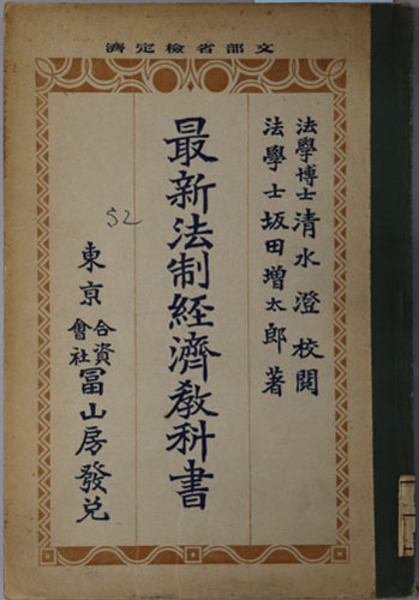 濟定檢省部文
法學博士 清水澄 校閲
法學士 坂田增太郎 著
最新法制經濟教科書
S2
東京 合資會社 冨山房發兌